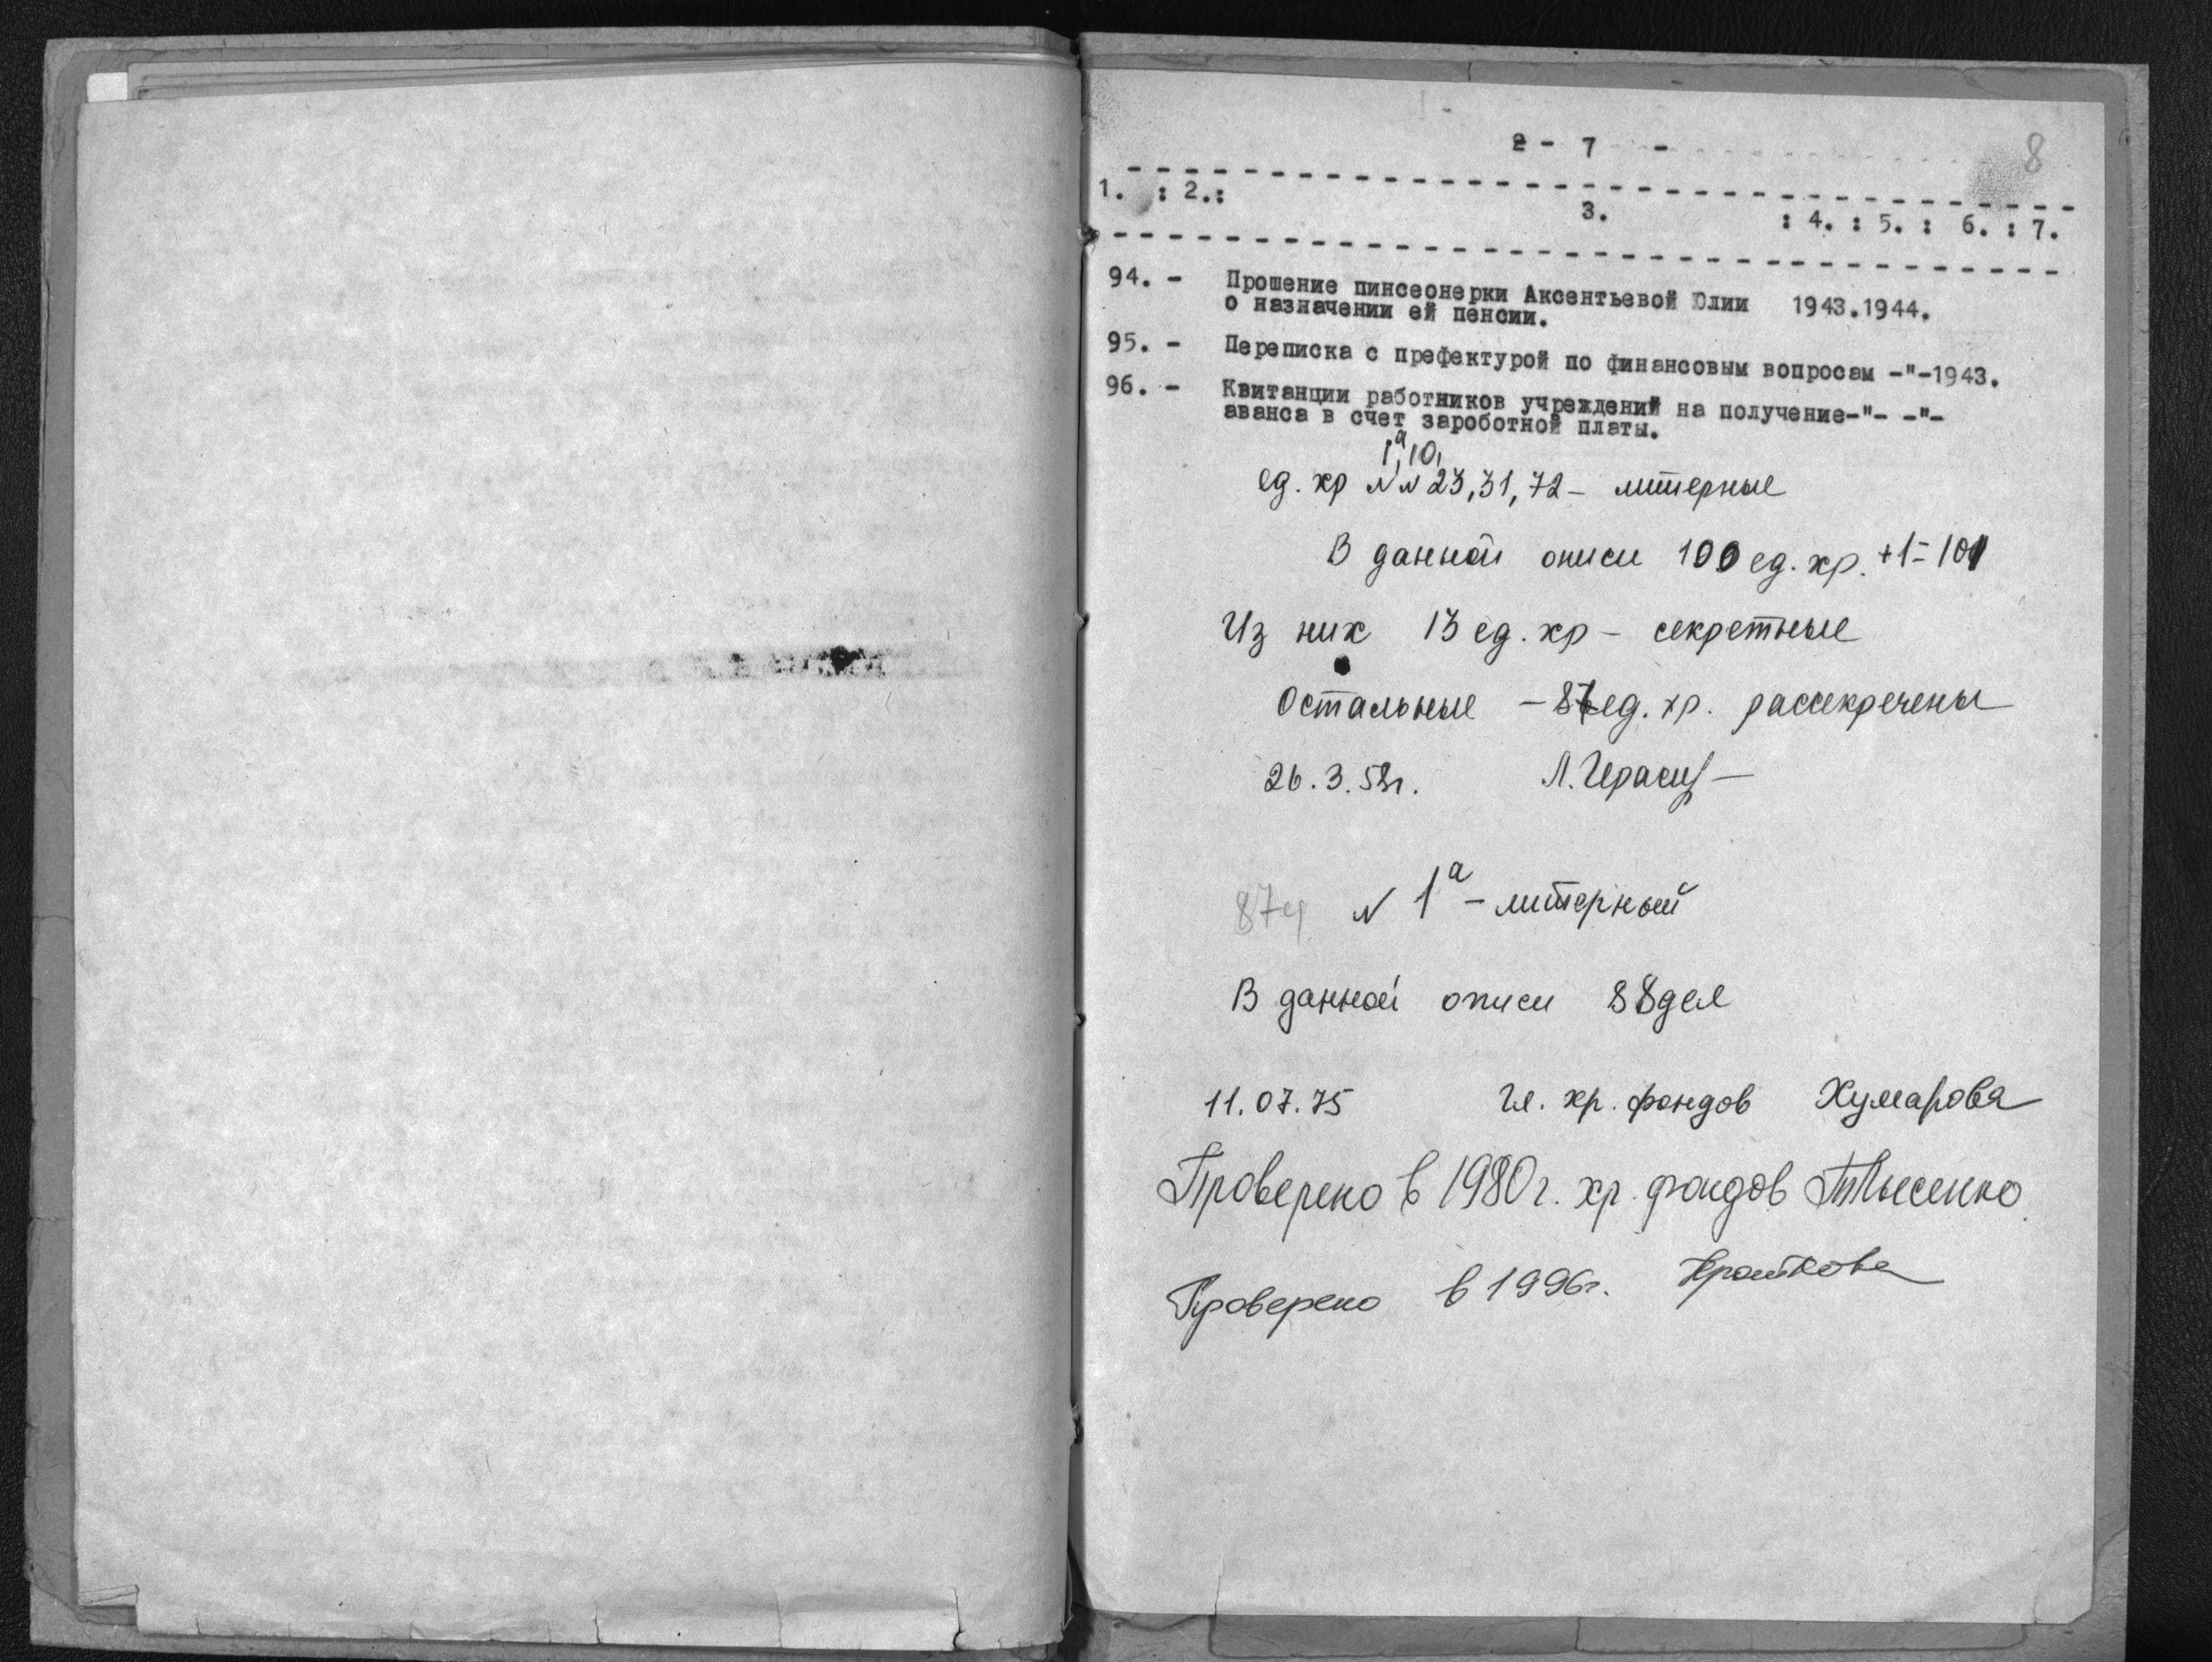 - 7 -
8
1. : 2.: 3. : 4. : 5. : 6. : 7.
94. - Прошение пинсеонерки Аксентьевой Юлии 1943.1944.
о назначении ей пенсии.
95. - Переписка с префектурой по финансовым вопросам -"-1943.
96. - Квитанции работников учреждений на получение-"- -"-
аванса в счет зароботной платы.
1а, 10,
ед. хр №№ 23, 31, 72 - литерные
В данной описи 100 ед. хр. +1=101
Из них 13 ед. хр - секретные
Остальные - 87 ед. хр. рассекречены
26.3.58г. Л.
87 № 1а - литерный
В данной описи 88 дел
11.07.75 Гл. хр. фондов Хумарова
Проверено в 1980 г. хр. фондов
Проверено в 1996г.